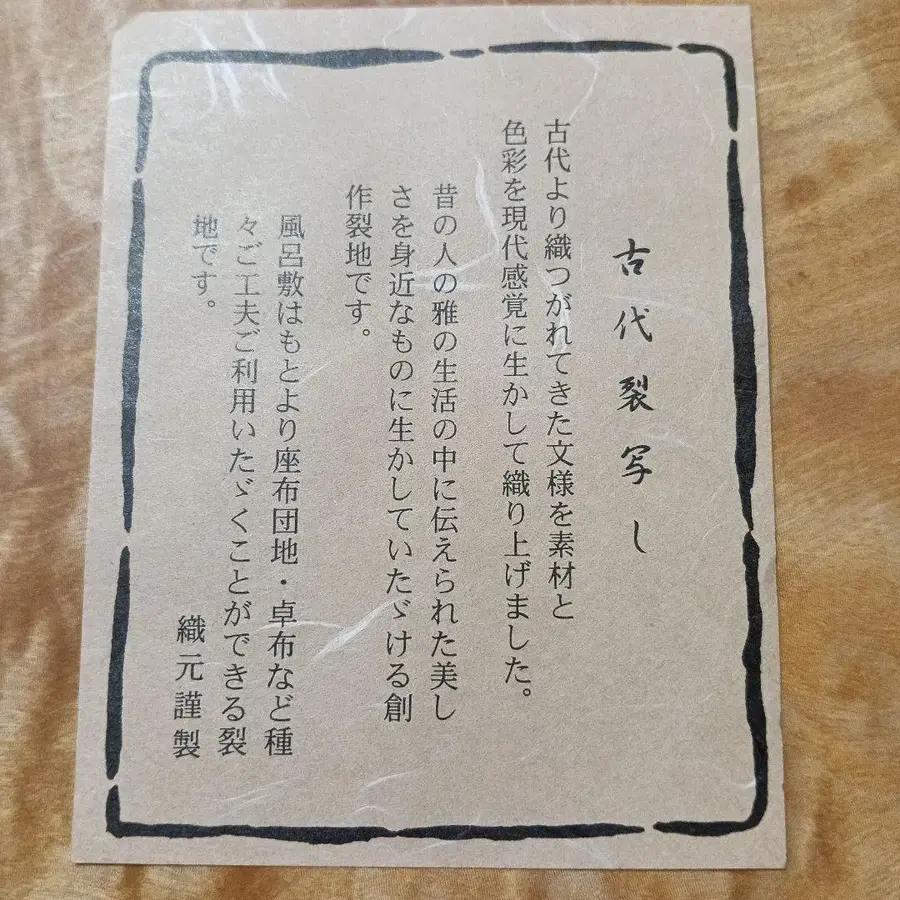 古代裂写し
古代より織つがれてきた文様を素材と
色彩を現代感覚に生かして織り上げました。
昔の人の雅の生活の中に伝えられた美し
さを身近なものに生かしていたゞける創
作裂地です。
風呂敷はもとより座布団地・卓布など種
々ご工夫ご利用いたゞくことができる裂
地です。
織元謹製